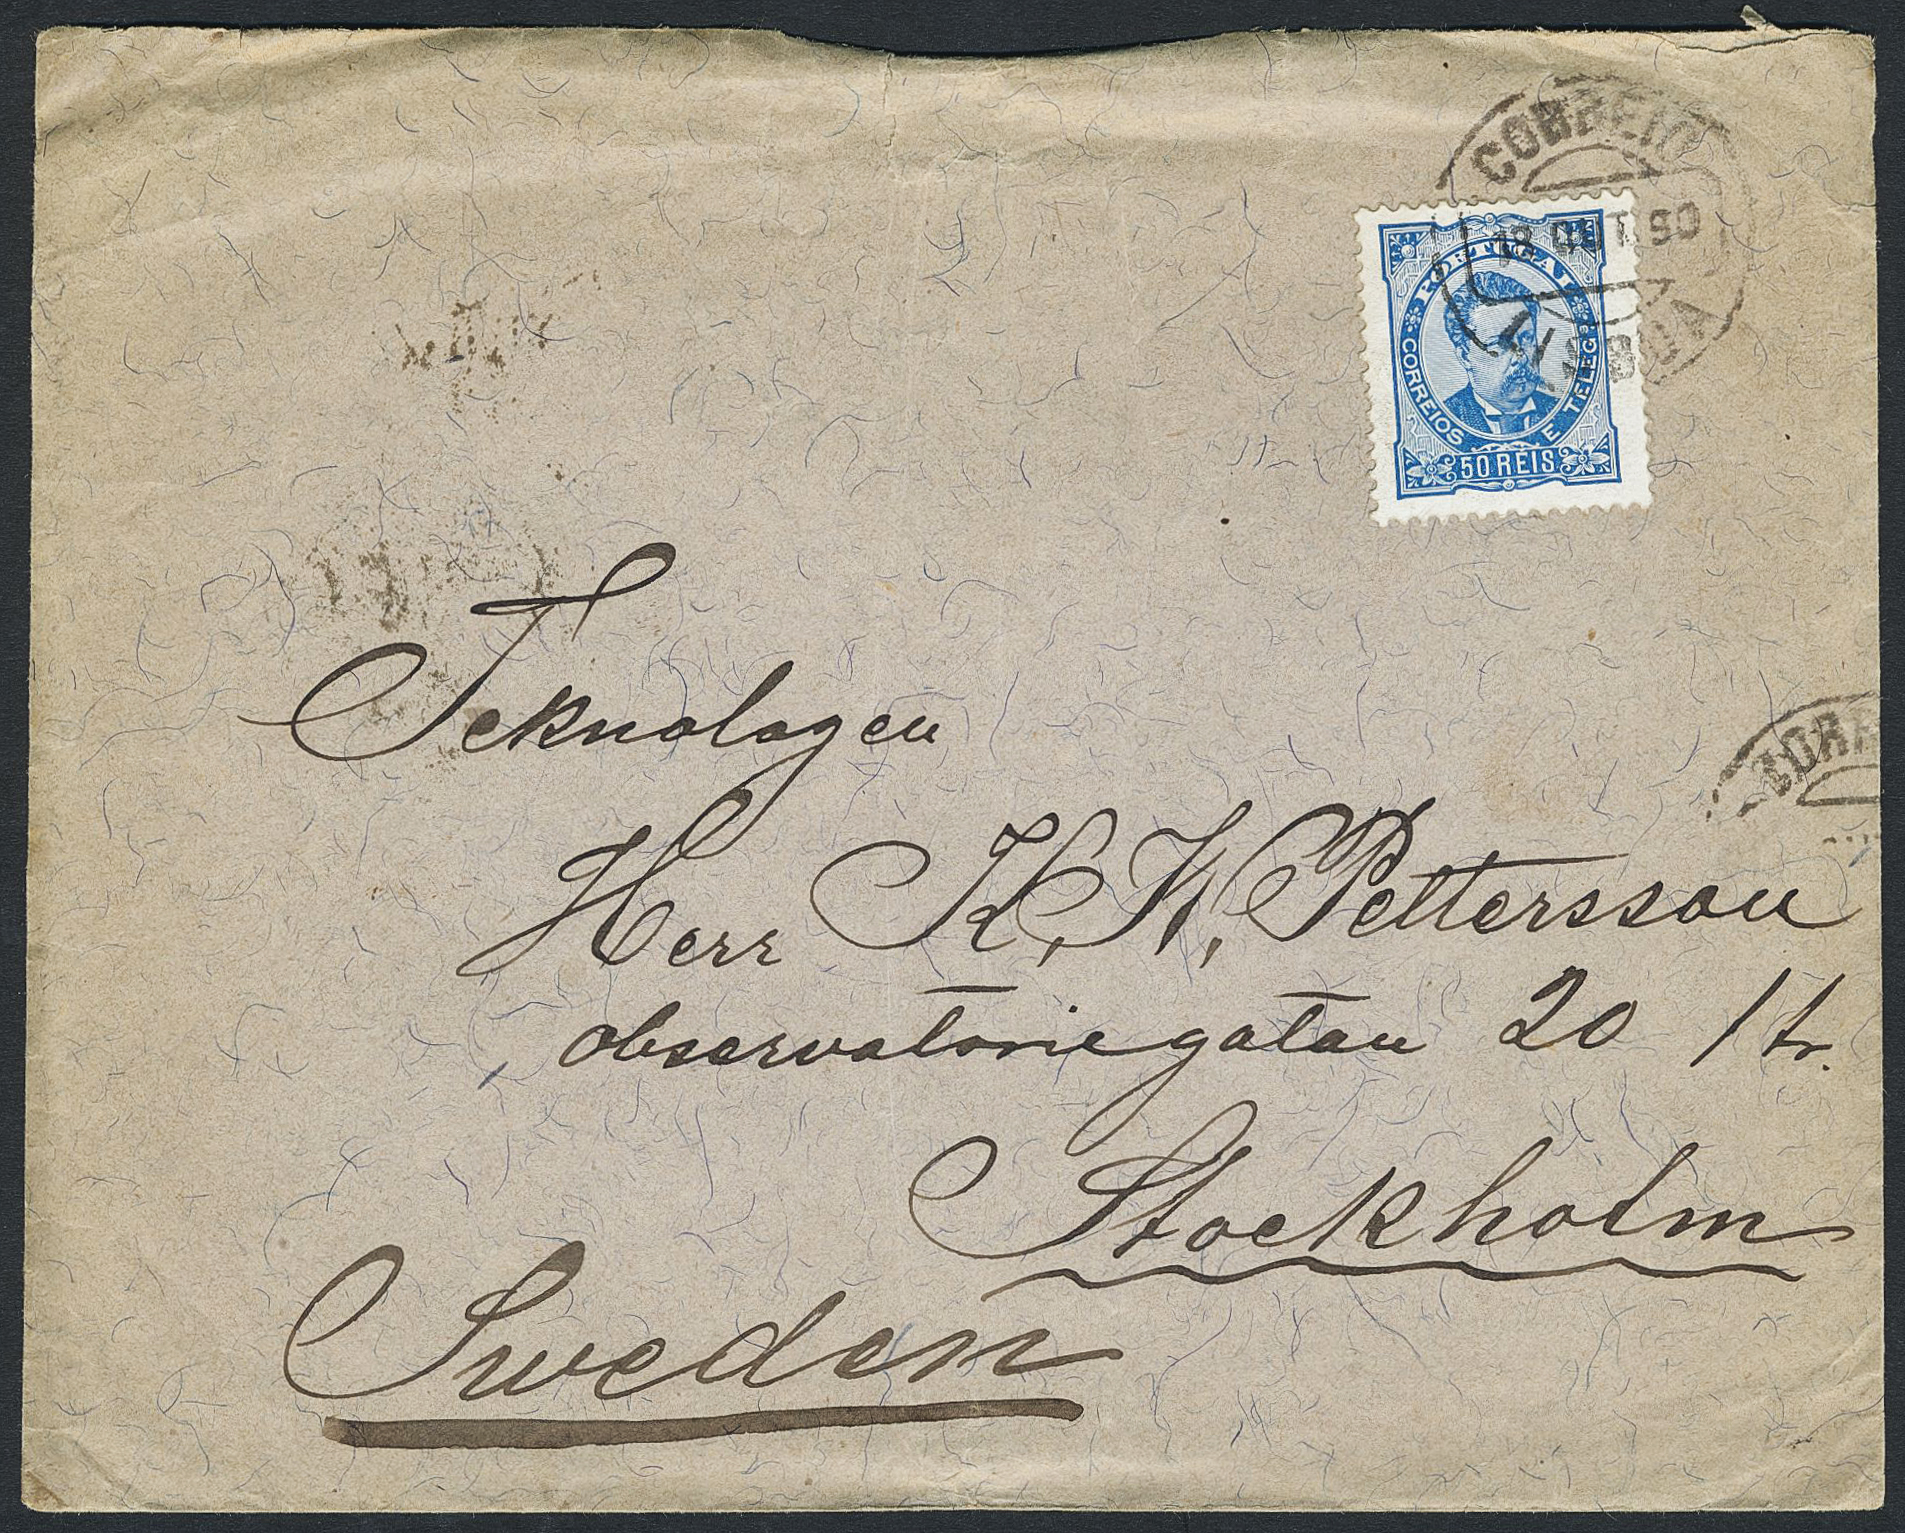 CORREIO
18 OUT. 90
LISBOA
PORTUGAL
CORREIOS E TELEG
50 REIS
Teknologen
CORRE
Herr K. W. Pettersson
observatoriegatan 20 1 tr.
Stockholm
Sweden